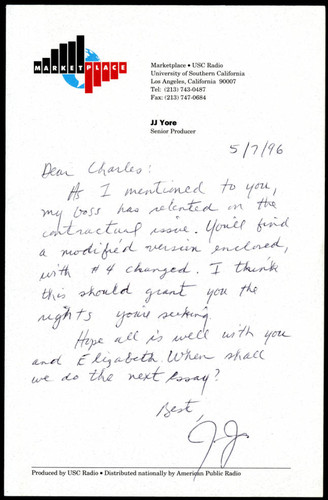 MARKETPLACE
Marketplace • USC Radio
University of Southern California
Los Angeles, California 90007
Tel: (213) 743-0487
Fax: (213) 747-0684
JJ Yore
Senior Producer
5/7/96
Dear Charles:
As I mentioned to you,
my boss has relented on the
contractual issue. You'll find
a modified version enclosed,
with #4 changed. I think
this should grant you the
rights you're seeking.
Hope all is well with you
and Elizabeth. When shall
we do the next essay?
Best,
JJ
Produced by USC Radio • Distributed nationally by American Public Radio